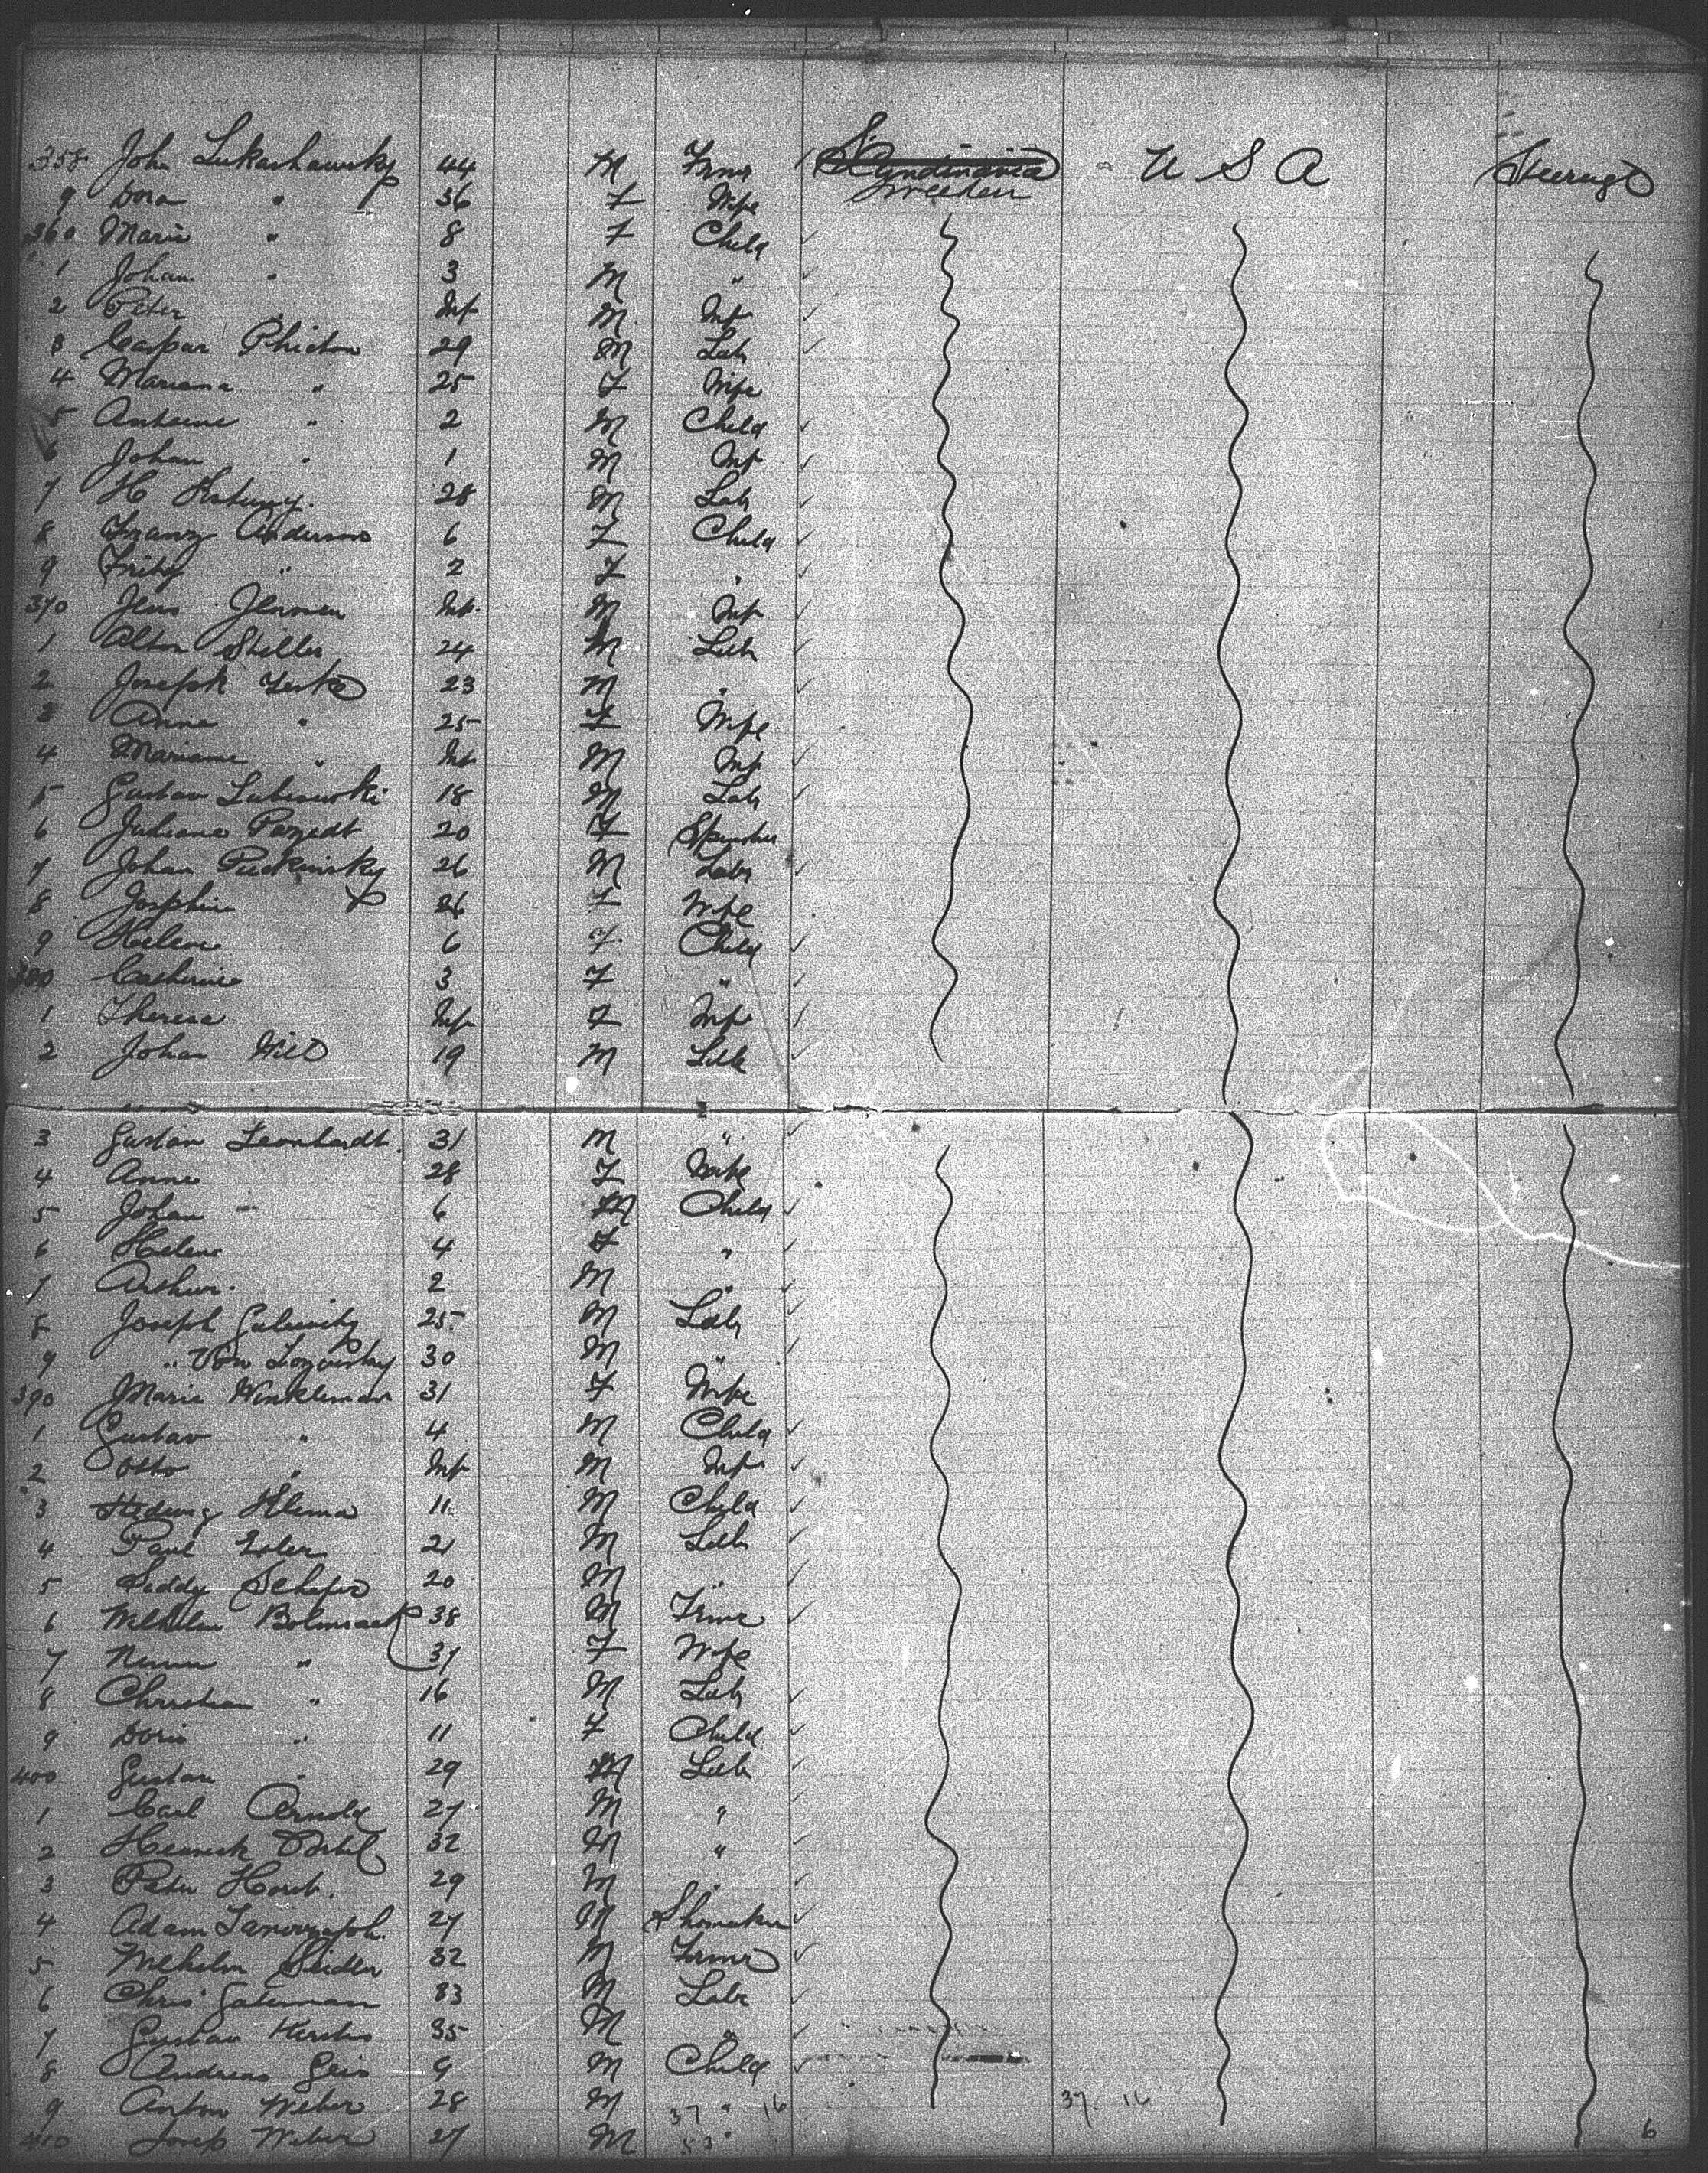 358 John Lukashawsky 44 M Frmr Scandinavia U S A Steerage
Sweeden
9 Dora " 36 F Wife
360 Marie " 8 F Child
1 Johan " 3 M "
2 Peter " Inf M Inf
3 Caspar 29 M Lab
4 Mariana " 25 F Wife
5 Antoine " 2 M Child
6 Johan " 1 M Inf
7 H 28 M Lab
8 Franz Anderson 6 F Child
9 Fritz " 2 F "
370 Jens Jensen Inf M Inf
1 Alton Steller 24 M Lab
2 Joseph 23 M "
3 Anna " 25 F Wife
4 Mariane " Inf M Inf
5 Gustav Lubisowski 18 M Lab
6 Juliana 20 F Spinster
7 Johan Puckinsky 26 M Labr
8 Josephine 26 F Wife
9 Helene 6 F Child
380 Catherine 3 F "
1 Theresa Inf F Inf
2 Johan 19 M Lab
3 Gustav Leonhardt 31 M "
4 Anna 28 F Wife
5 Johan " 6 M Child
6 Helene 4 F "
7 Arthur 2 M "
8 Joseph 25 M Lab
9 " Von 30 M "
390 Marie Winkleman 31 F Wife
1 Gustav " 4 M Child
2 Otto " Inf M Inf
3 Hedwig Klema 11 M Child
4 Paul 21 M Lab
5 20 M "
6 Wilhelm 38 M Frmr
7 " 37 F Wife
8 Christian " 16 M Lab
9 Doris " 11 F Child
400 Gustav " 29 M Lab
1 Carl Arnold 27 M "
2 32 M "
3 Peter 29 M "
4 Adam 27 M Shomaker
5 Wilhelm Seidler 32 M Frmr
6 Chris Gaterman 33 M Labr
7 Gustav 35 M "
8 Andreas Geis 9 M Child
9 Anton Weber 28 M " 37 16 37. 16
410 Josep Weber 27 M 6